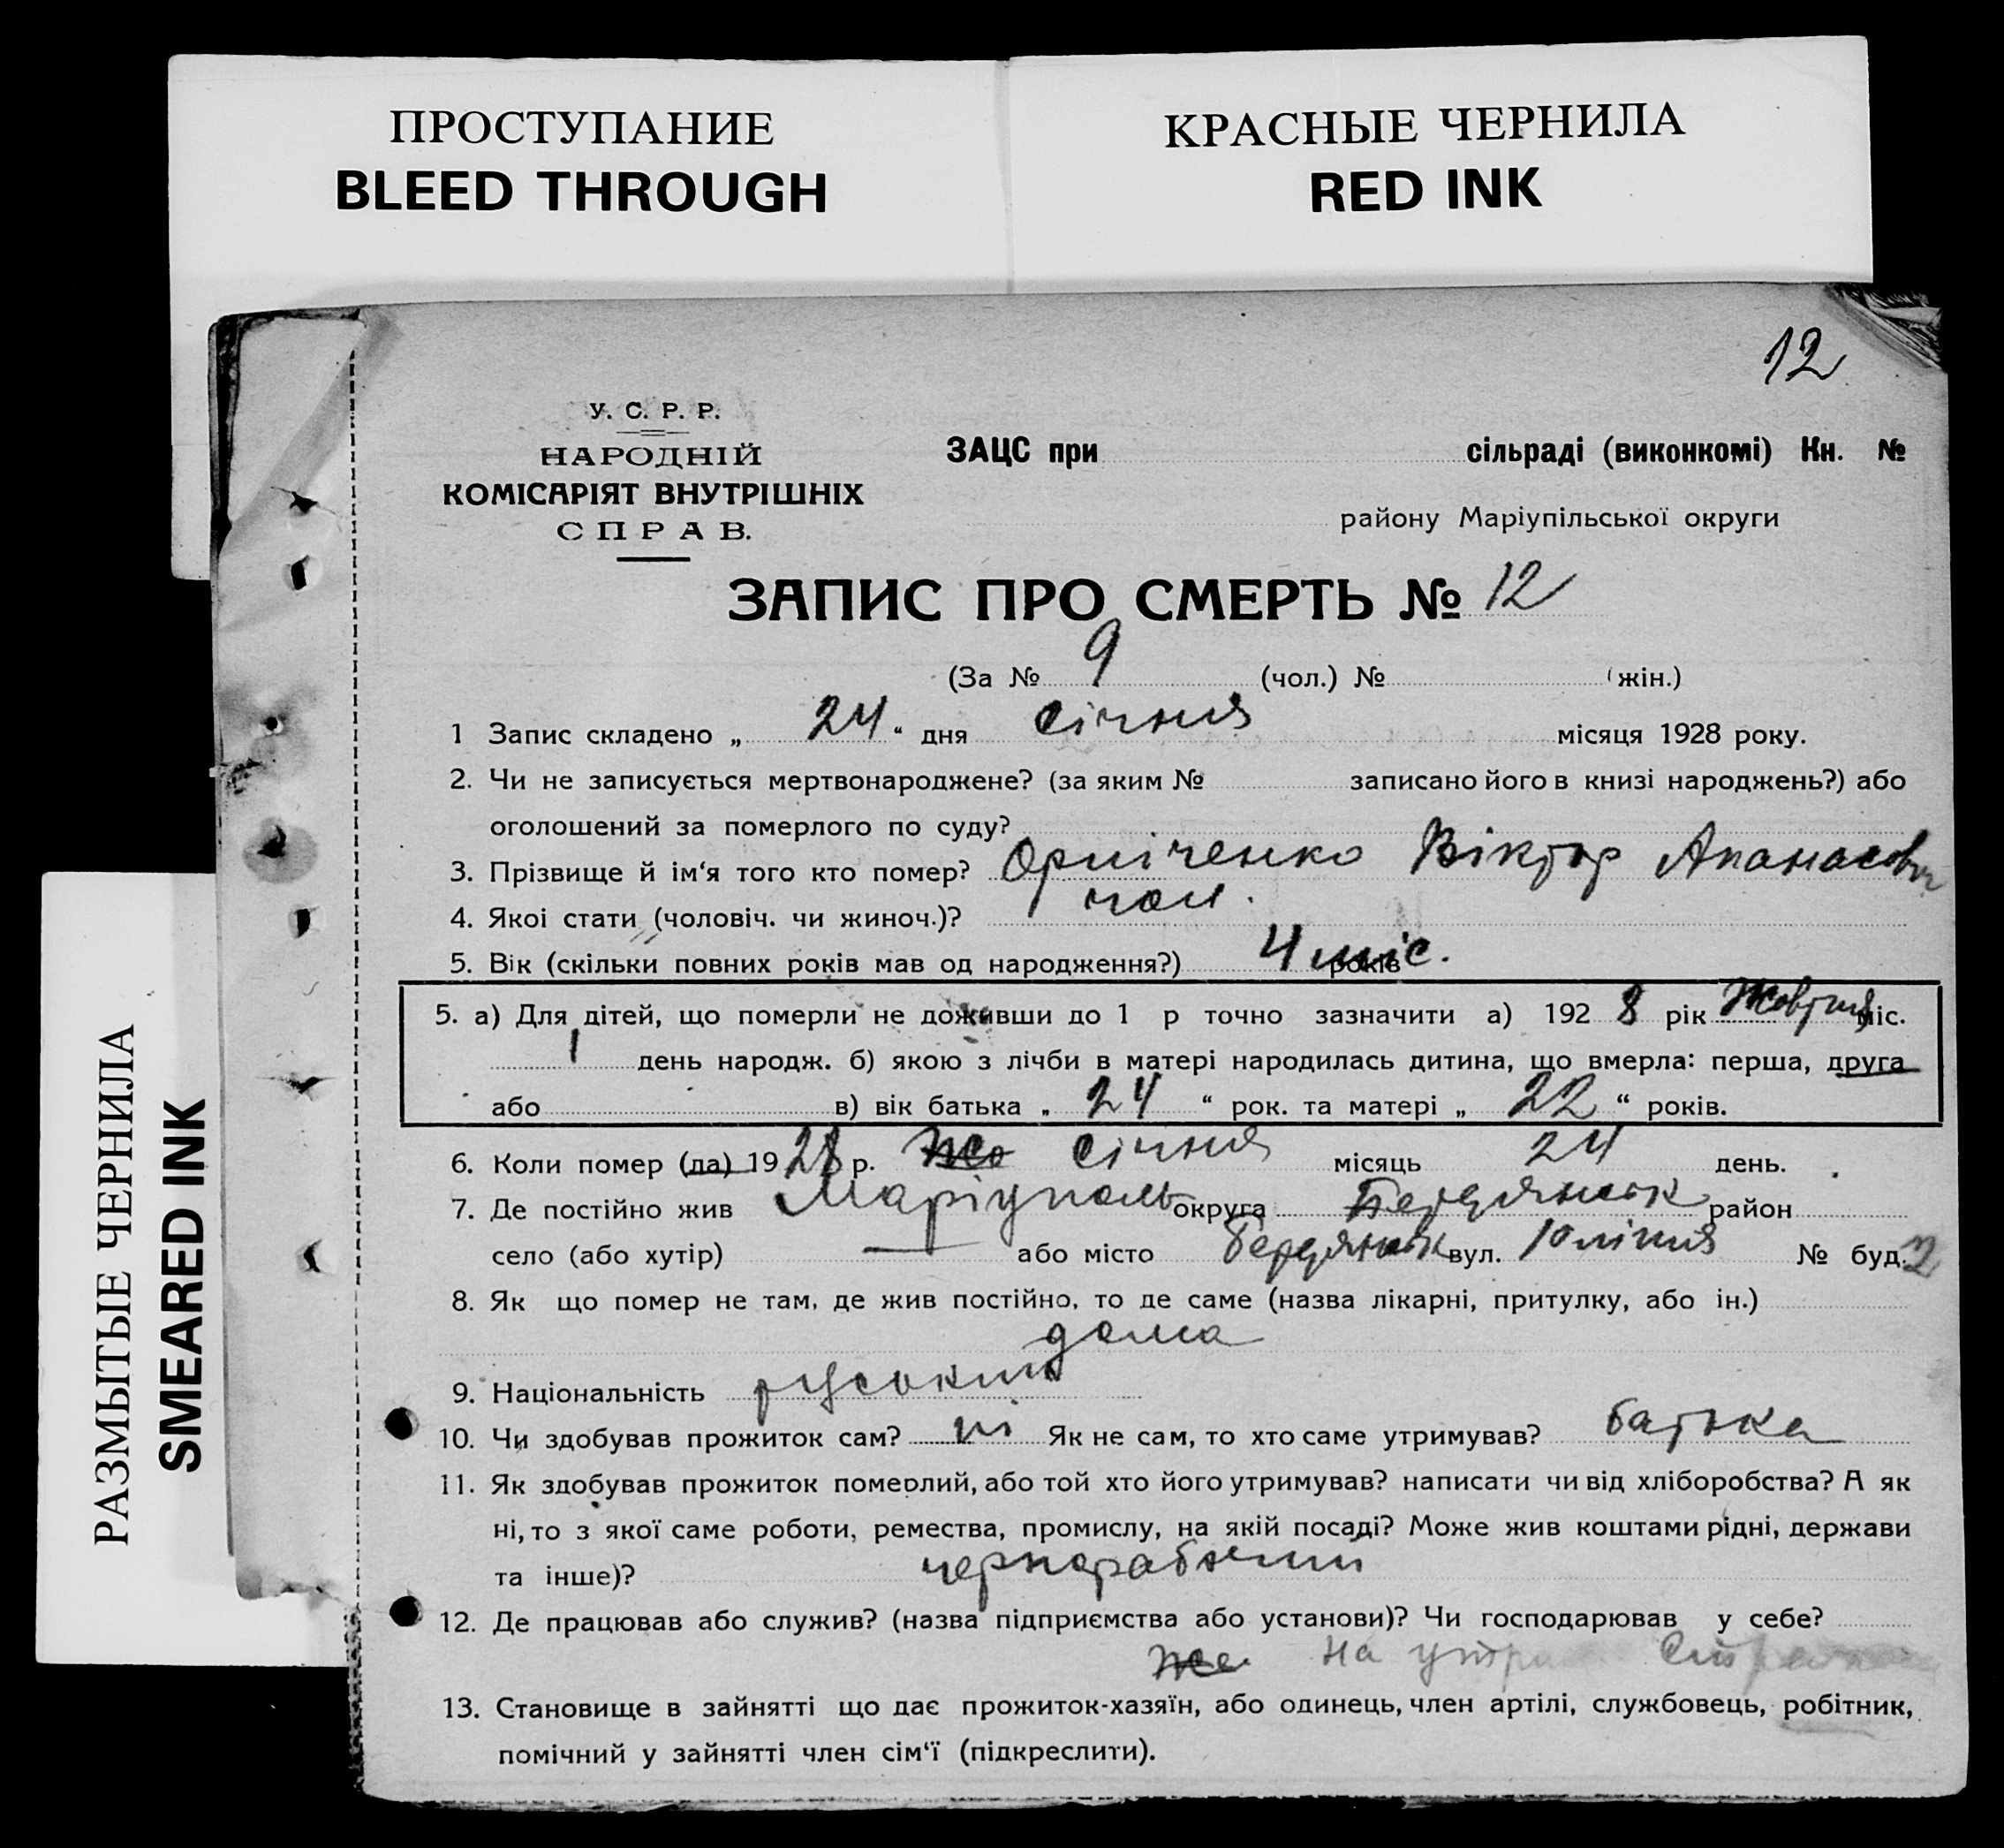 ПРОСТУПАНИЕ
BLEED THROUGH
КРАСНЫЕ ЧЕРНИЛА
RED INK
РАЗМЫТЫЕ ЧЕРНИЛА
SMEARED INK
12
У. С. Р. Р.
НАРОДНІЙ
КОМІСАРІЯТ ВНУТРІШНІХ
СПРАВ.
ЗАЦС при сільраді (виконкомі) Кн. №
району Маріупільської округи
ЗАПИС ПРО СМЕРТЬ № 12
(За № 9 (чол.) № (жін.)
1 Запис складено „ 24 “ дня січня місяця 1928 року.
2. Чи не записується мертвонароджене? (за яким № записано його в книзі народжень?) або
оголошений за померлого по суду?
3. Прізвище й ім‘я того кто помер? Віктор Апанасович
4. Якоі стати (чоловіч. чи жиноч.)? чол.
5. Вік (скільки повних років мав од народження?) 4 міс. років
5. а) Для дітей, що померли не доживши до 1 р точно зазначити а) 192 8 рік Жовтня міс.
1 день народж. б) якою з лічби в матері народилась дитина, що вмерла: перша, друга
або в) вік батька „ 24 “ рок. та матері „ 22 “ років.
6. Коли помер (ла) 19 28 р. Жо січня місяць 24 день.
7. Де постійно жив Маріуполь округа Бердянськ район
село (або хутір) — або місто Бердянськ вул. 10 лінія № буд. 2
8. Як що помер не там, де жив постійно, то де саме (назва лікарні, притулку, або ін.)
дома
9. Національність руський
10. Чи здобував прожиток сам? ні Як не сам, то хто саме утримував? батька
11. Як здобував прожиток померлий, або той хто його утримував? написати чи від хліборобства? А як
ні, то з якої саме роботи, ремества, промислу, на якій посаді? Може жив коштами рідні, держави
та інше)? чернорабочий
12. Де працював або служив? (назва підприємства або установи)? Чи господарював у себе?
На
13. Становище в зайнятті що дає прожиток-хазяїн, або одинець, член артілі, службовець, робітник,
помічний у зайнятті член сім‘ї (підкреслити).